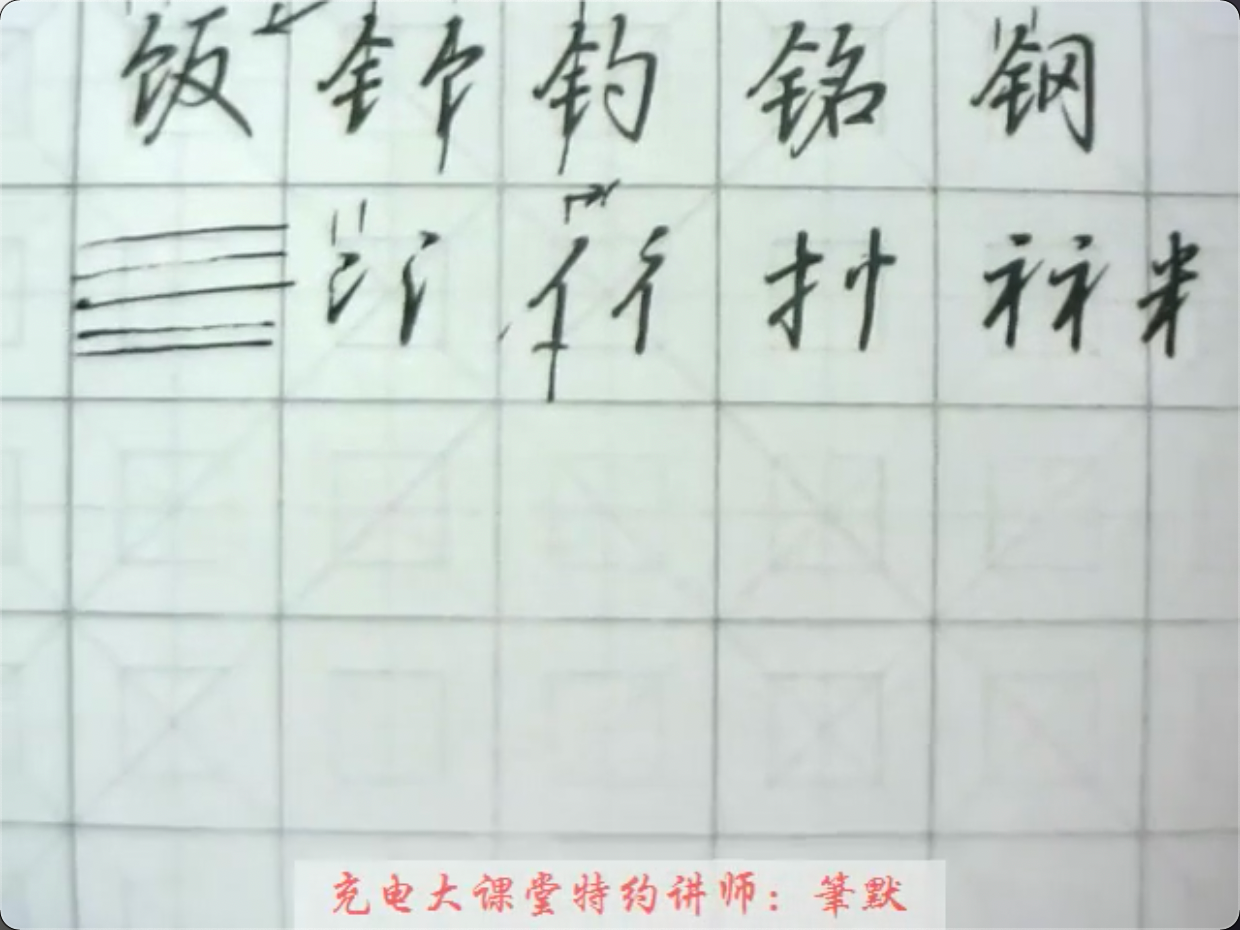 饭 钅 饣 钓 铭 钢
冫 讠 亻 彳 扌 礻 衤 米
充电大课堂特约讲师：筆默